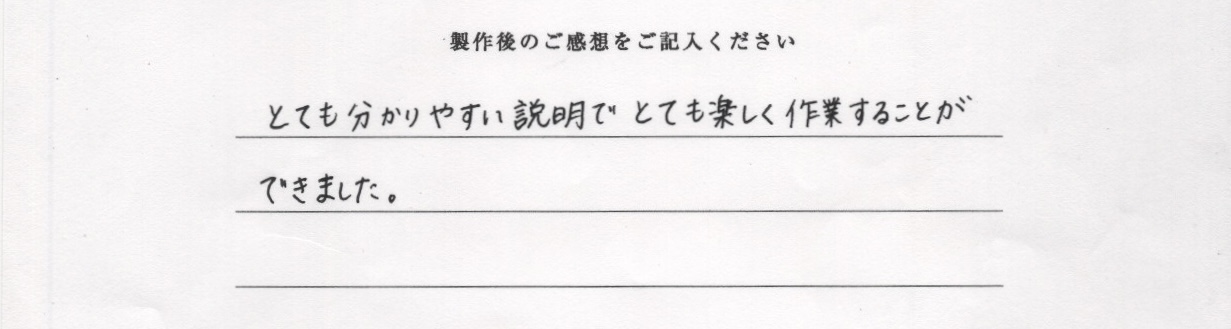 製作後のご感想をご記入ください
とても分かりやすい説明でとても楽しく作業することが
できました。